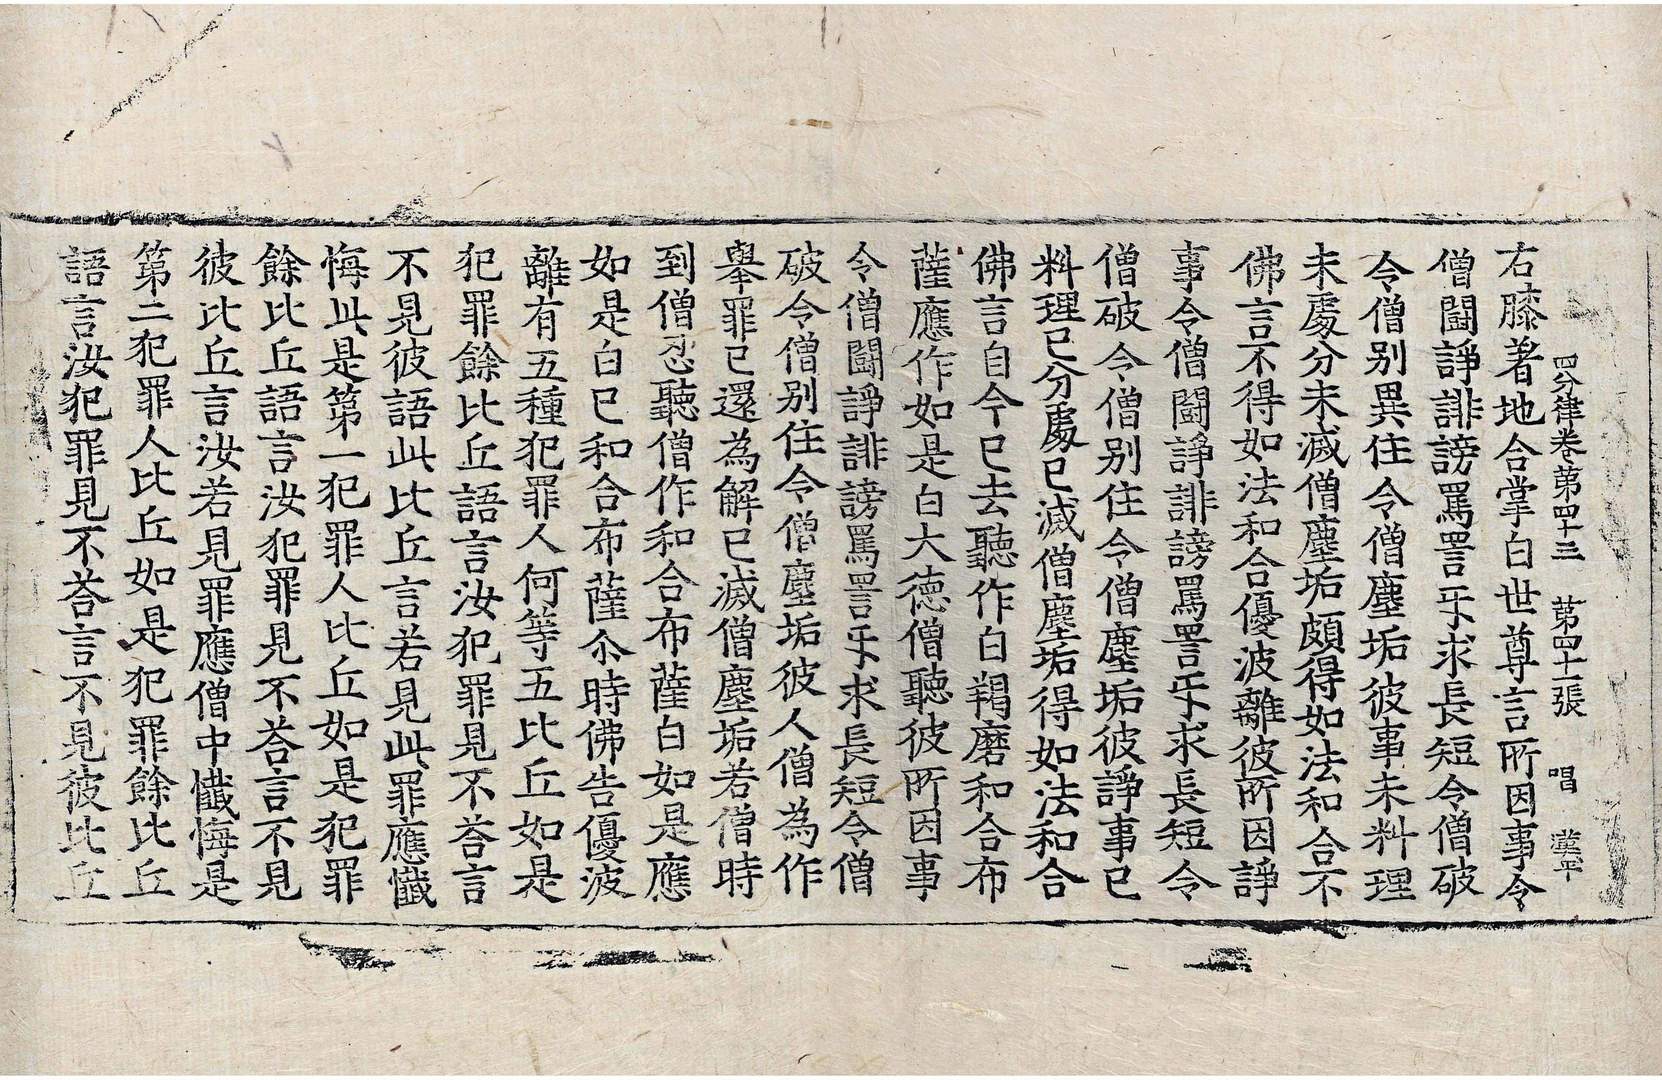 四分律卷第四十三 第四十一張 唱 漢平
右膝著地合掌白世尊言所因事令
僧鬪諍誹謗罵詈𠄔求長短令僧破
令僧別異住令僧塵垢彼事未料理
未處分未滅僧塵垢頗得如法和合不
佛言不得如法和合優波離彼所因諍
事令僧鬪諍誹謗罵詈𠄔求長短令
僧破令僧別住令僧塵垢彼諍事已
料理已分處已滅僧塵垢得如法和合
佛言自今已去聽作白羯磨和合布
薩應作如是白大德僧聽彼所因事
令僧鬪諍誹謗罵詈𠄔求長短令僧
破令僧別住令僧塵垢彼人僧為作
舉罪已還為解已滅僧塵垢若僧時
到僧忍聽僧作和合布薩白如是應
如是白已和合布薩尒時佛告優波
離有五種犯罪人何等五比丘如是
犯罪餘比丘語言汝犯罪見不荅言
不見彼語此比丘言若見此罪應懺
悔此是第一犯罪人比丘如是犯罪
餘比丘語言汝犯罪見不荅言不見
彼比丘言汝若見罪應僧中懺悔是
第二犯罪人比丘如是犯罪餘比丘
語言汝犯罪見不荅言不見彼比丘